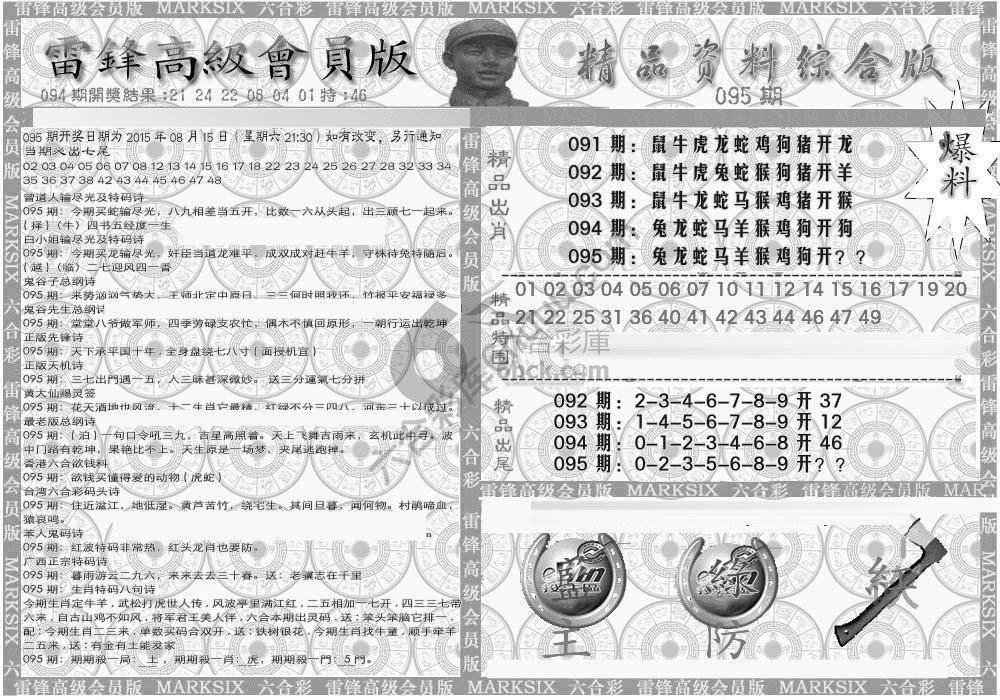 雷锋高级会员版 MARKSIX 六合彩 雷锋高级会员版 MARKSIX 六合彩 雷锋高级会员版
雷鋒高級會員版
精品资料综合版
094期開獎結果:21 24 22 08 04 01特:46
095期
095 期开奖日期为 2015 年 08 月 15 日（星期六 21:30）如有改变，另行通知
当期必出七尾
02 03 04 05 06 07 08 12 13 14 15 16 17 18 22 23 24 25 26 27 28 32 33 34
35 36 37 38 42 43 44 45 46 47 48
曾道人输尽光及特码诗
095 期：今期买蛇输尽光，八九相差当五开，比数一六从头起，出三顾七一起来。
{择}（牛）四书五经度一生
白小姐输尽光及特码诗
095 期：今期买龙输尽光，奸臣当道龙难平，成双成对赶牛羊，守株待兔特随后。
{越}（临）二七迎风四一香
鬼谷子总纲诗
095 期：来势汹汹气势大，王师北定中原日，三三何时照我还，竹报平安福禄多
鬼谷先生总纲诗
095 期：堂堂八爷做军师，四季劳碌支农忙，偶木不慎回原形，一朝行运出乾坤
正版先锋诗
095 期：天下承平国十年，全身盘绕七八寸{面授机宜}
正版天机诗
095 期：三七出門遇一五，入三昧甚深微妙。送三分運氣七分拼
黄大仙赐灵签
095 期：花天酒地也风流，十二生肖它最精，红绿不分三四八，河东三十以成过。
最老版总纲诗
095 期：{泊}一句口令吼三九，吉星高照着。天上飞舞吉雨来，玄机此中寻。波
中门路有乾坤，果艳比不上。天生原是一场梦，夹尾逃跑掉。
香港六合欲钱料
095 期：欲钱买懂得爱的动物{虎蛇}
台湾六合彩码头诗
095 期：住近湓江，地低湿。黄芦苦竹，绕宅生。其间旦暮，闻何物。村鹃啼血，
猿哀鸣。
苯人鬼码诗
095 期：红波特码非常热，红头龙肖也要防。
广西正宗特码诗
095 期：暮雨游云二九六，来来去去三十春。送：老骥志在千里
095 期：生肖特码八句诗
今期生肖定牛羊，武松打虎世人传，风波亭里满江红，二五相加一七开，四三三七带
六来，自古山鸡不如风，将军君王美人伴，六合本期出灵码，送：笨头笨脑它排一，
配：今期生肖二三来，单数买码合双开，送：铁树银花，今期生肖找牛童，顺手牵羊
二五来，送：有金有土能发家
095 期：期期殺一局：土，期期殺一肖：虎，期期殺一門：5 門。
精品出肖
091 期：鼠牛虎龙蛇鸡狗猪开龙
092 期：鼠牛虎兔蛇猴狗猪开羊
093 期：鼠牛龙蛇马猴鸡猪开猴
094 期：兔龙蛇马羊猴鸡狗开狗
095 期：兔龙蛇马羊猴鸡狗开？？
爆料
精品特围
01 02 03 04 05 06 07 10 11 12 14 15 16 17 19 20
21 22 25 31 36 40 41 42 43 44 46 47 49
精品出尾
092 期：2-3-4-6-7-8-9 开 37
093 期：1-4-5-6-7-8-9 开 12
094 期：0-1-2-3-4-6-8 开 46
095 期：0-2-3-5-6-8-9 开？？
雷锋高级会员版 MARKSIX 六合彩 雷锋高级会员版
藍
綠
紅
主
防
雷锋高级会员版 MARKSIX 六合彩 雷锋高级会员版 MARKSIX 六合彩 雷锋高级会员版